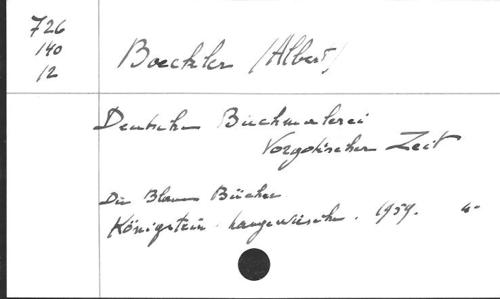 726
140
12
Boeckler (Albert)
Deutsche Buchmalerei
Vorgotischer Zeit
Die Blauen Bücher
Königstein. Langewiesche. 1959.